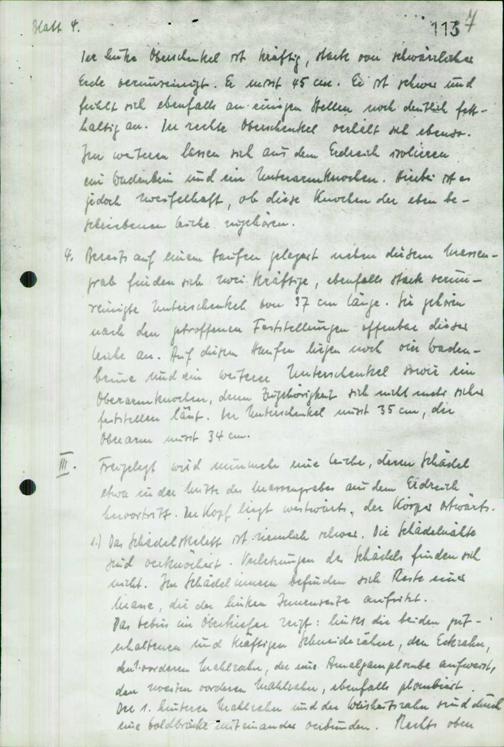 Blatt 4.
113 7
Der linke Oberschenkel ist kräftig, stark von schwärzlicher
Erde verunreinigt. Er misst 45 cm. Er ist schwer und
fühlt sich ebenfalls an einigen Stellen noch deutlich fett-
haltig an. Der rechte Oberschenkel verhält sich ebenso.
Im weiteren lassen sich aus dem Erdreich isolieren
ein Wadenbein und ein Unterarmknochen. Hierbei ist es
jedoch zweifelhaft, ob diese Knochen der eben be-
schriebenen Leiche zugehören.
4. Bereits auf einem Haufen gelegent neben diesem Massen-
grab finden sich zwei kräftige, ebenfalls stark verun-
reinigte Unterschenkel von 37 cm Länge. Sie gehören
nach den getroffenen Feststellungen offenbar dieser
Leiche an. Auf diesem Haufen liegen noch ein Waden-
beine und ein weiterer Unterschenkel sowie ein
Oberarmknochen, deren Zugehörigkeit sich nicht mehr sicher
feststellen läßt. Der Unterschenkel misst 35 cm, der
Oberarm misst 34 cm.
III. Freigelegt wird nunmehr eine Leiche, deren Schädel
etwa in der Mitte des Massengrabes aus dem Erdreich
hervortritt. Der Kopf liegt westwärts, der Körper ostwärts.
1.) Das Schädelskelett ist ziemlich schwer. Die Schädelnähte
sind verknöchert. Verletzungen des Schädels finden sich
nicht. Im Schädelinnern befinden sich Reste einer
Masse, die der linken Innenseite aufsitzt.
Das Gebiss im Oberkiefer zeigt: links die beiden gut-
erhaltenen und kräftigen Schneidezähne, den Eckzahn,
den 1. vorderen Mahlzahn, der eine Amalgamplombe aufweist,
den zweiten vorderen Mahlzahn, ebenfalls plombiert.
Der 1. hintere Mahlzahn und der Weisheitszahn sind durch
eine Goldbrücke miteinander verbunden. Rechts oben